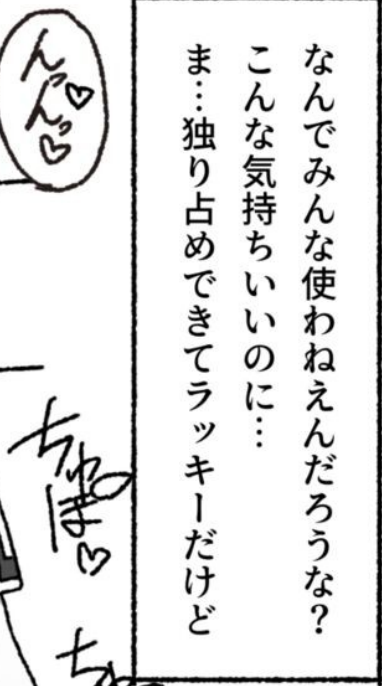 なんでみんな使わねえんだろうな？
こんな気持ちいいのに…
ま…独り占めできてラッキーだけど
んっ♡
んっ♡
ちゅぽ♡
ちゅ